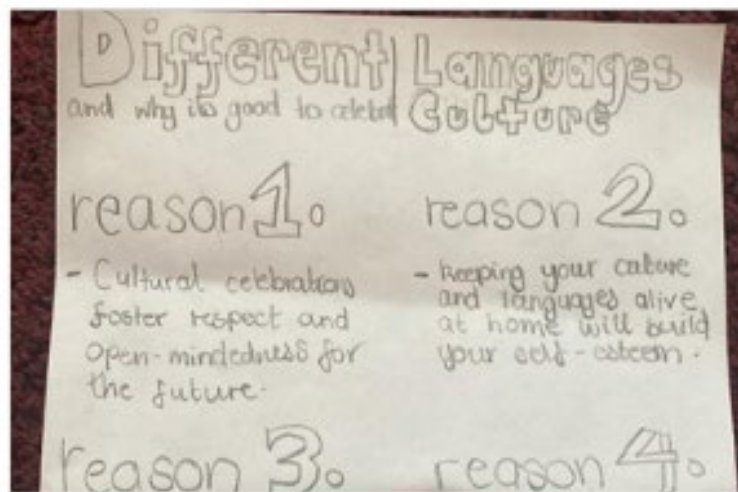 Different Languages
and why its good to celebrat Culture
reason 1.
- Cultural celebrations
foster respect and
open-mindedness for
the future.
reason 2.
- keeping your culture
and languages alive
at home will build
your self-esteem.
reason 3.
reason 4.